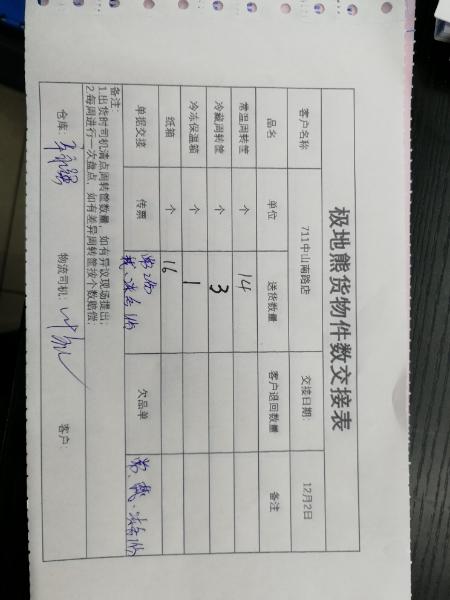 极地熊货物件数交接表
客户名称 711中山南路店 交接日期： 12月2日
品名 单位 送货数量 客户退回数量 备注
常温周转筐 个 14
冷藏周转筐 个 3
冷冻保温箱 个 1
纸箱 个 16
单据交接 传票 欠品单
备注：
1.出货时司机清点周转筐数量，如有异议现场提出；
2.每周进行一次盘点，如有差异周转筐按个数赔偿；
仓库： 物流司机： 客户：